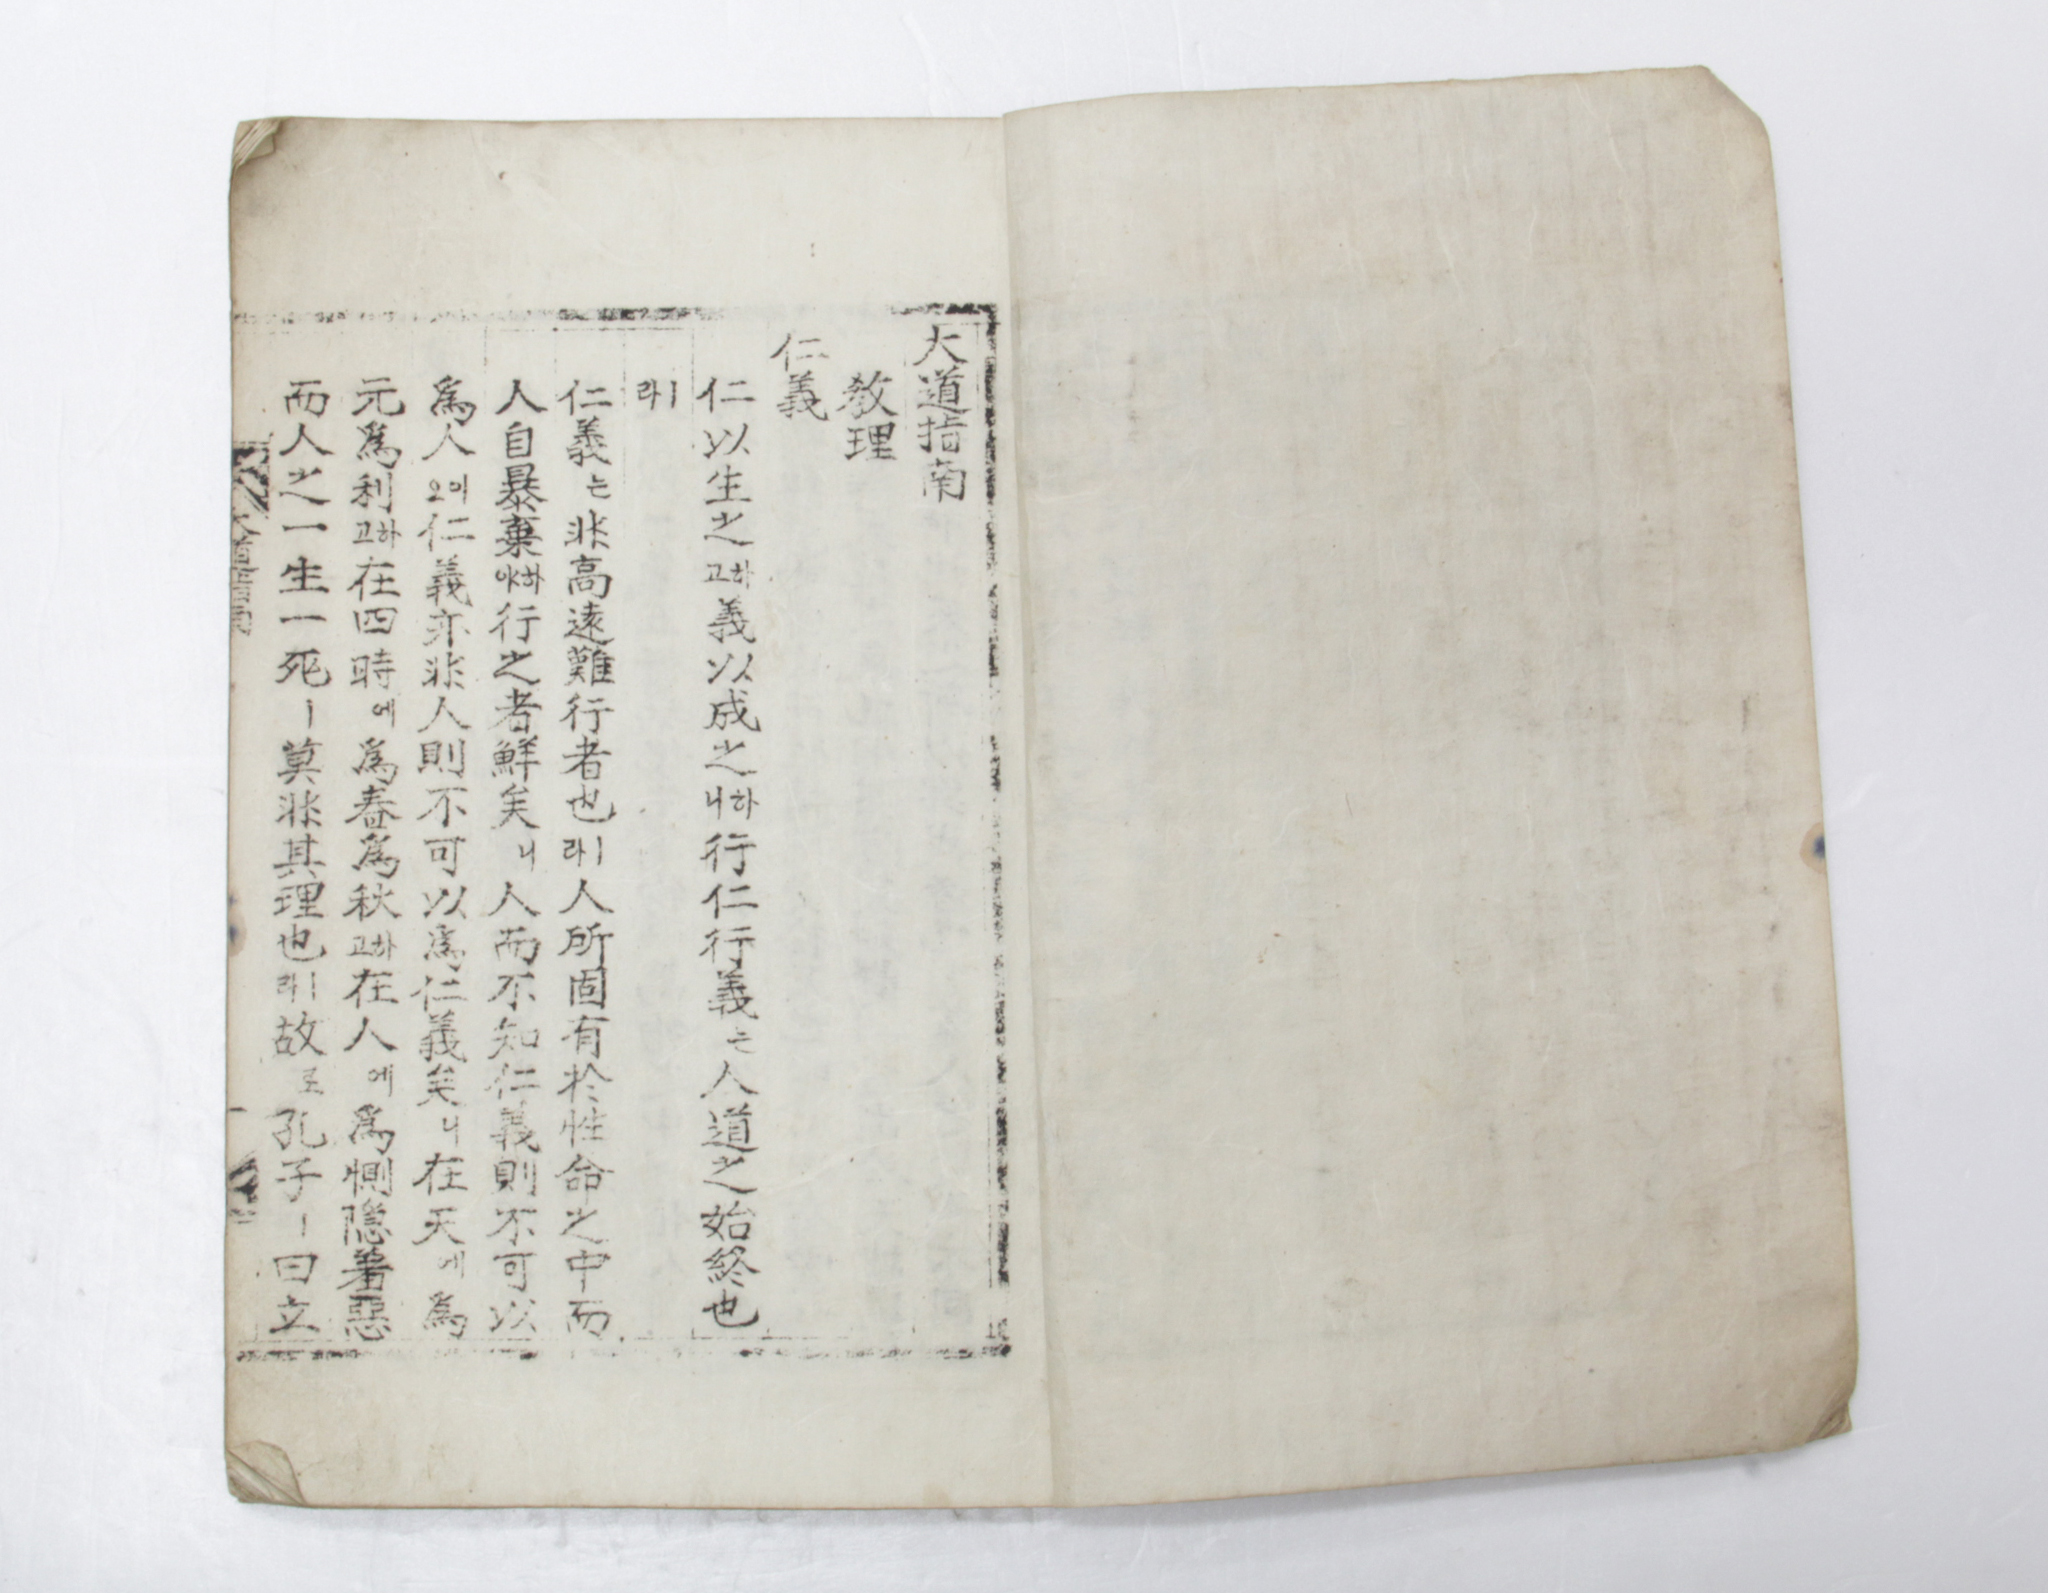 大道指南
教理
仁義
仁以生之하고義以成之하니行仁行義는人道之始終也
ㅣ라
仁義는非高遠難行者也ㅣ라人所固有於性命之中而
人自暴棄하야行之者鮮矣니人而不知仁義則不可以
爲人이오仁義亦非人則不可以爲仁義矣니在天에爲
元爲利하고在四時에爲春爲秋하고在人에爲惻隱羞惡
而人之一生一死ㅣ莫非其理也ㅣ라故로孔子ㅣ曰立
大道指南